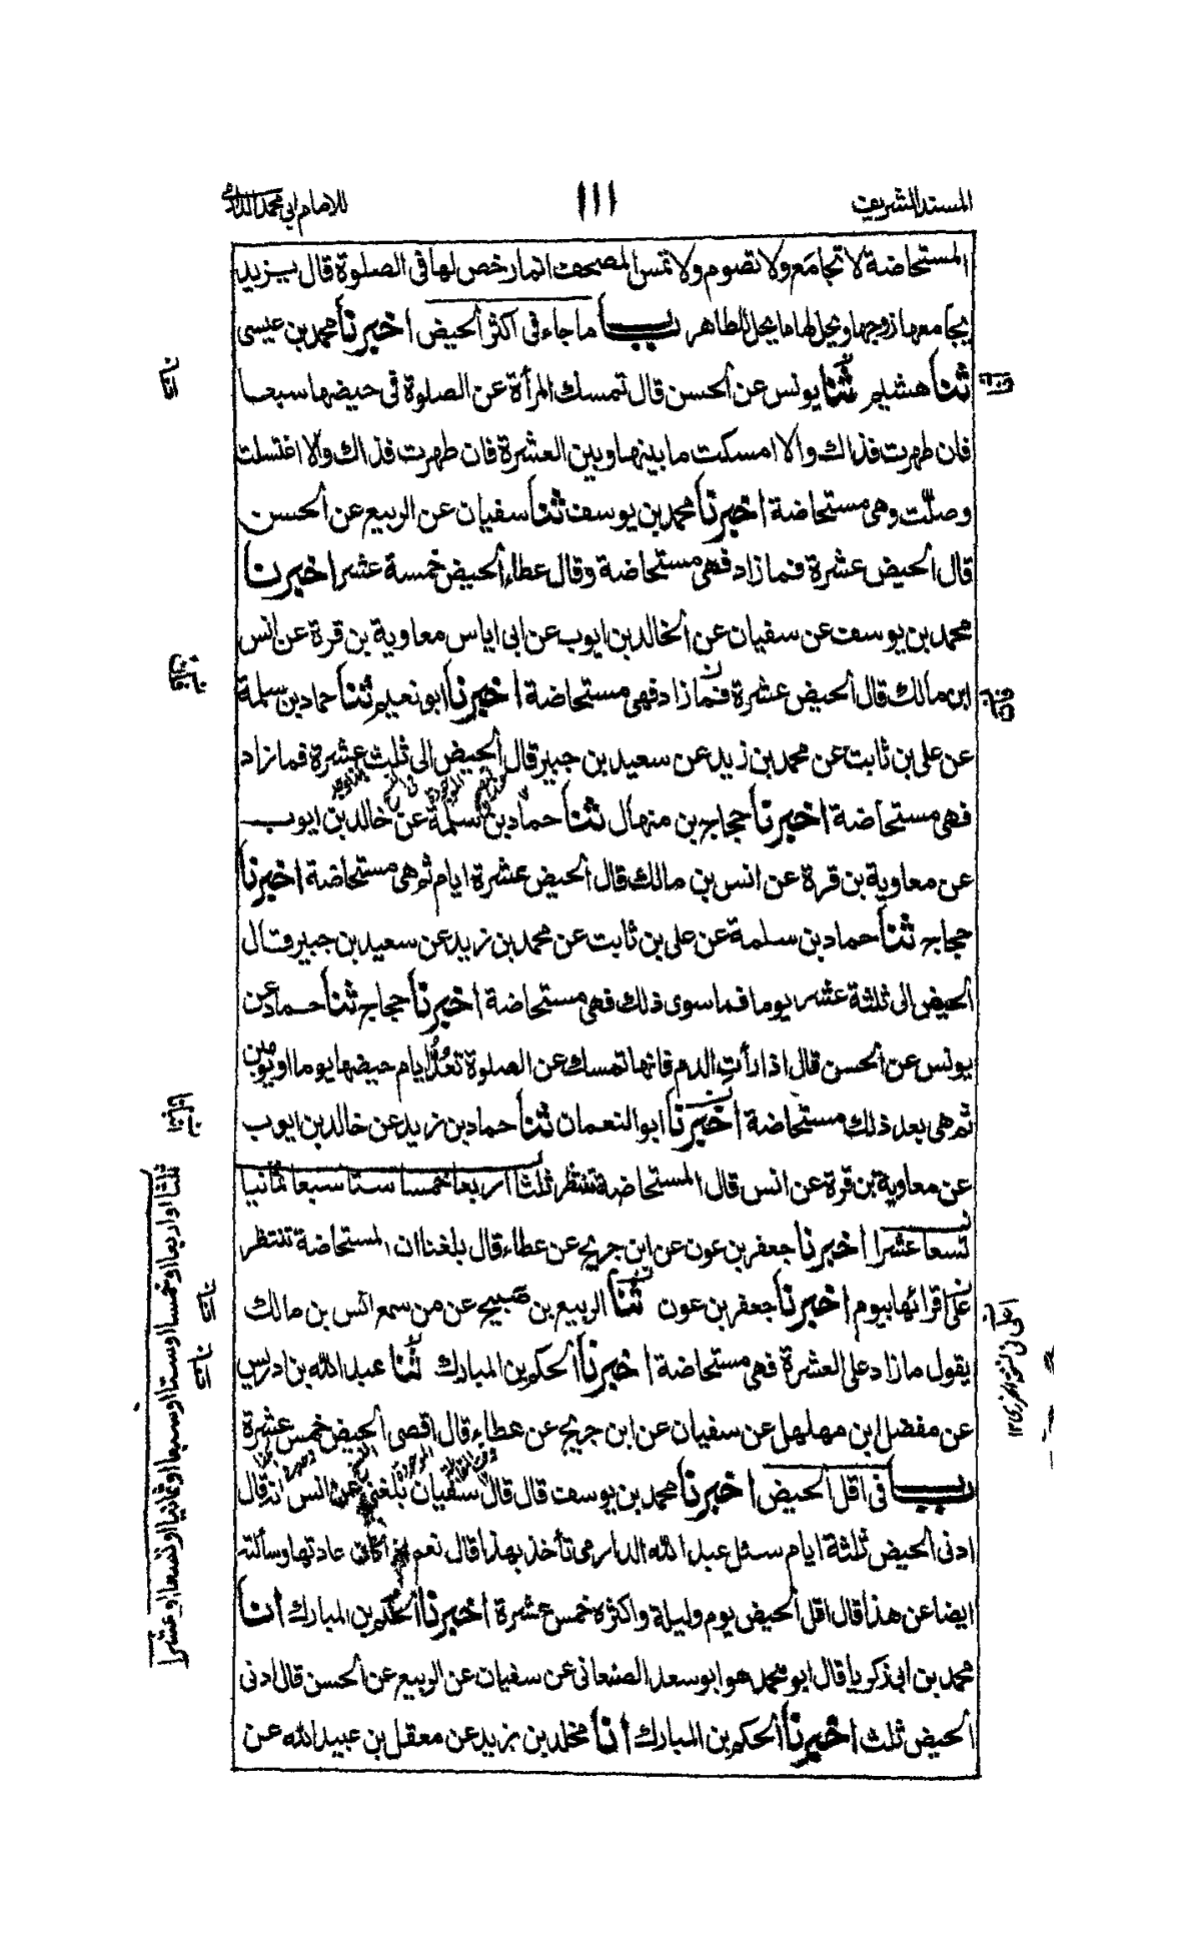 المسند الشريف
١١١
للامام ابي محمد الدارمي
المستحاضة لا تجامع ولا تصوم ولا تمس المصحف انما رخص لها فى الصلوة قال يزيد
يجامعها زوجها ويحل لها ما يحل للطاهر باب ما جاء فى اكثر الحيض اخبرنا محمد بن عيسى
ثنا هشيم ثنا يونس عن الحسن قال تمسك المرأة عن الصلوة فى حيضها سبعا
فان طهرت فذاك والا امسكت ما بينها وبين العشرة فان طهرت فذاك والا اغتسلت
وصلّت وهى مستحاضة اخبرنا محمد بن يوسف ثنا سفيان عن الربيع عن الحسن
قال الحيض عشرة فما زاد فهى مستحاضة وقال عطاء الحيض خمسة عشر اخبرنا
محمد بن يوسف عن سفيان عن الخالد بن ايوب عن ابى اياس معاوية بن قرة عن انس
ابن مالك قال الحيض عشرة فما زاد فهى مستحاضة اخبرنا ابو نعيم ثنا حماد بن سلمة
عن على بن ثابت عن محمد بن زيد عن سعيد بن جبير قال الحيض الى ثلث عشرة فما زاد
فهى مستحاضة اخبرنا حجاج بن منهال ثنا حماد بن سلمة عن خالد بن ايوب
عن معاوية بن قرة عن انس بن مالك قال الحيض عشرة ايام ثم هى مستحاضة اخبرنا
حجاج ثنا حماد بن سلمة عن على بن ثابت عن محمد بن زيد عن سعيد بن جبير قال
الحيض الى ثلثة عشر يوما فما سوى ذلك فهى مستحاضة اخبرنا حجاج ثنا حماد عن
يونس عن الحسن قال اذا رأت الدم فانها تمسك عن الصلوة تعدّ ايام حيضها يوما او يومين
ثم هى بعد ذلك مستحاضة اخبرنا ابو النعمان ثنا حماد بن زيد عن خالد بن ايوب
عن معاوية بن قرة عن انس قال المستحاضة تنتظر ثلثا اربعا خمسا ستا سبعا ثمانيا
تسعا عشرا اخبرنا جعفر بن عون عن ابن جريج عن عطاء قال بلغنا ان المستحاضة تنتظر
على اقرائها بيوم اخبرنا جعفر بن عون ثنا الربيع بن صبيح عن من سمع انس بن مالك
يقول ما زاد على العشرة فهى مستحاضة اخبرنا الحكم بن المبارك ثنا عبد الله بن ادريس
عن مفضل ابن مهلهل عن سفيان عن ابن جريج عن عطاء قال اقصى الحيض خمس عشرة
باب فى اقل الحيض اخبرنا محمد بن يوسف قال قال سفيان بلغنى عن انس انه قال
ادنى الحيض ثلثة ايام سئل عبد الله الدارمى تأخذ بهذا قال نعم اذا كان عادتها وسألته
ايضا عن هذا قال اقل الحيض يوم وليلة واكثره خمس عشرة اخبرنا الحكم بن المبارك انا
محمد بن ابى زكريا قال ابو محمد هو ابو سعد الصنعانى عن سفيان عن الربيع عن الحسن قال ادنى
الحيض ثلث اخبرنا الحكم بن المبارك انا مخلد بن يزيد عن معقل بن عبيد الله عن
ثلثا او اربعا او خمسا او ستا او سبعا او ثمانيا او تسعا او عشرا